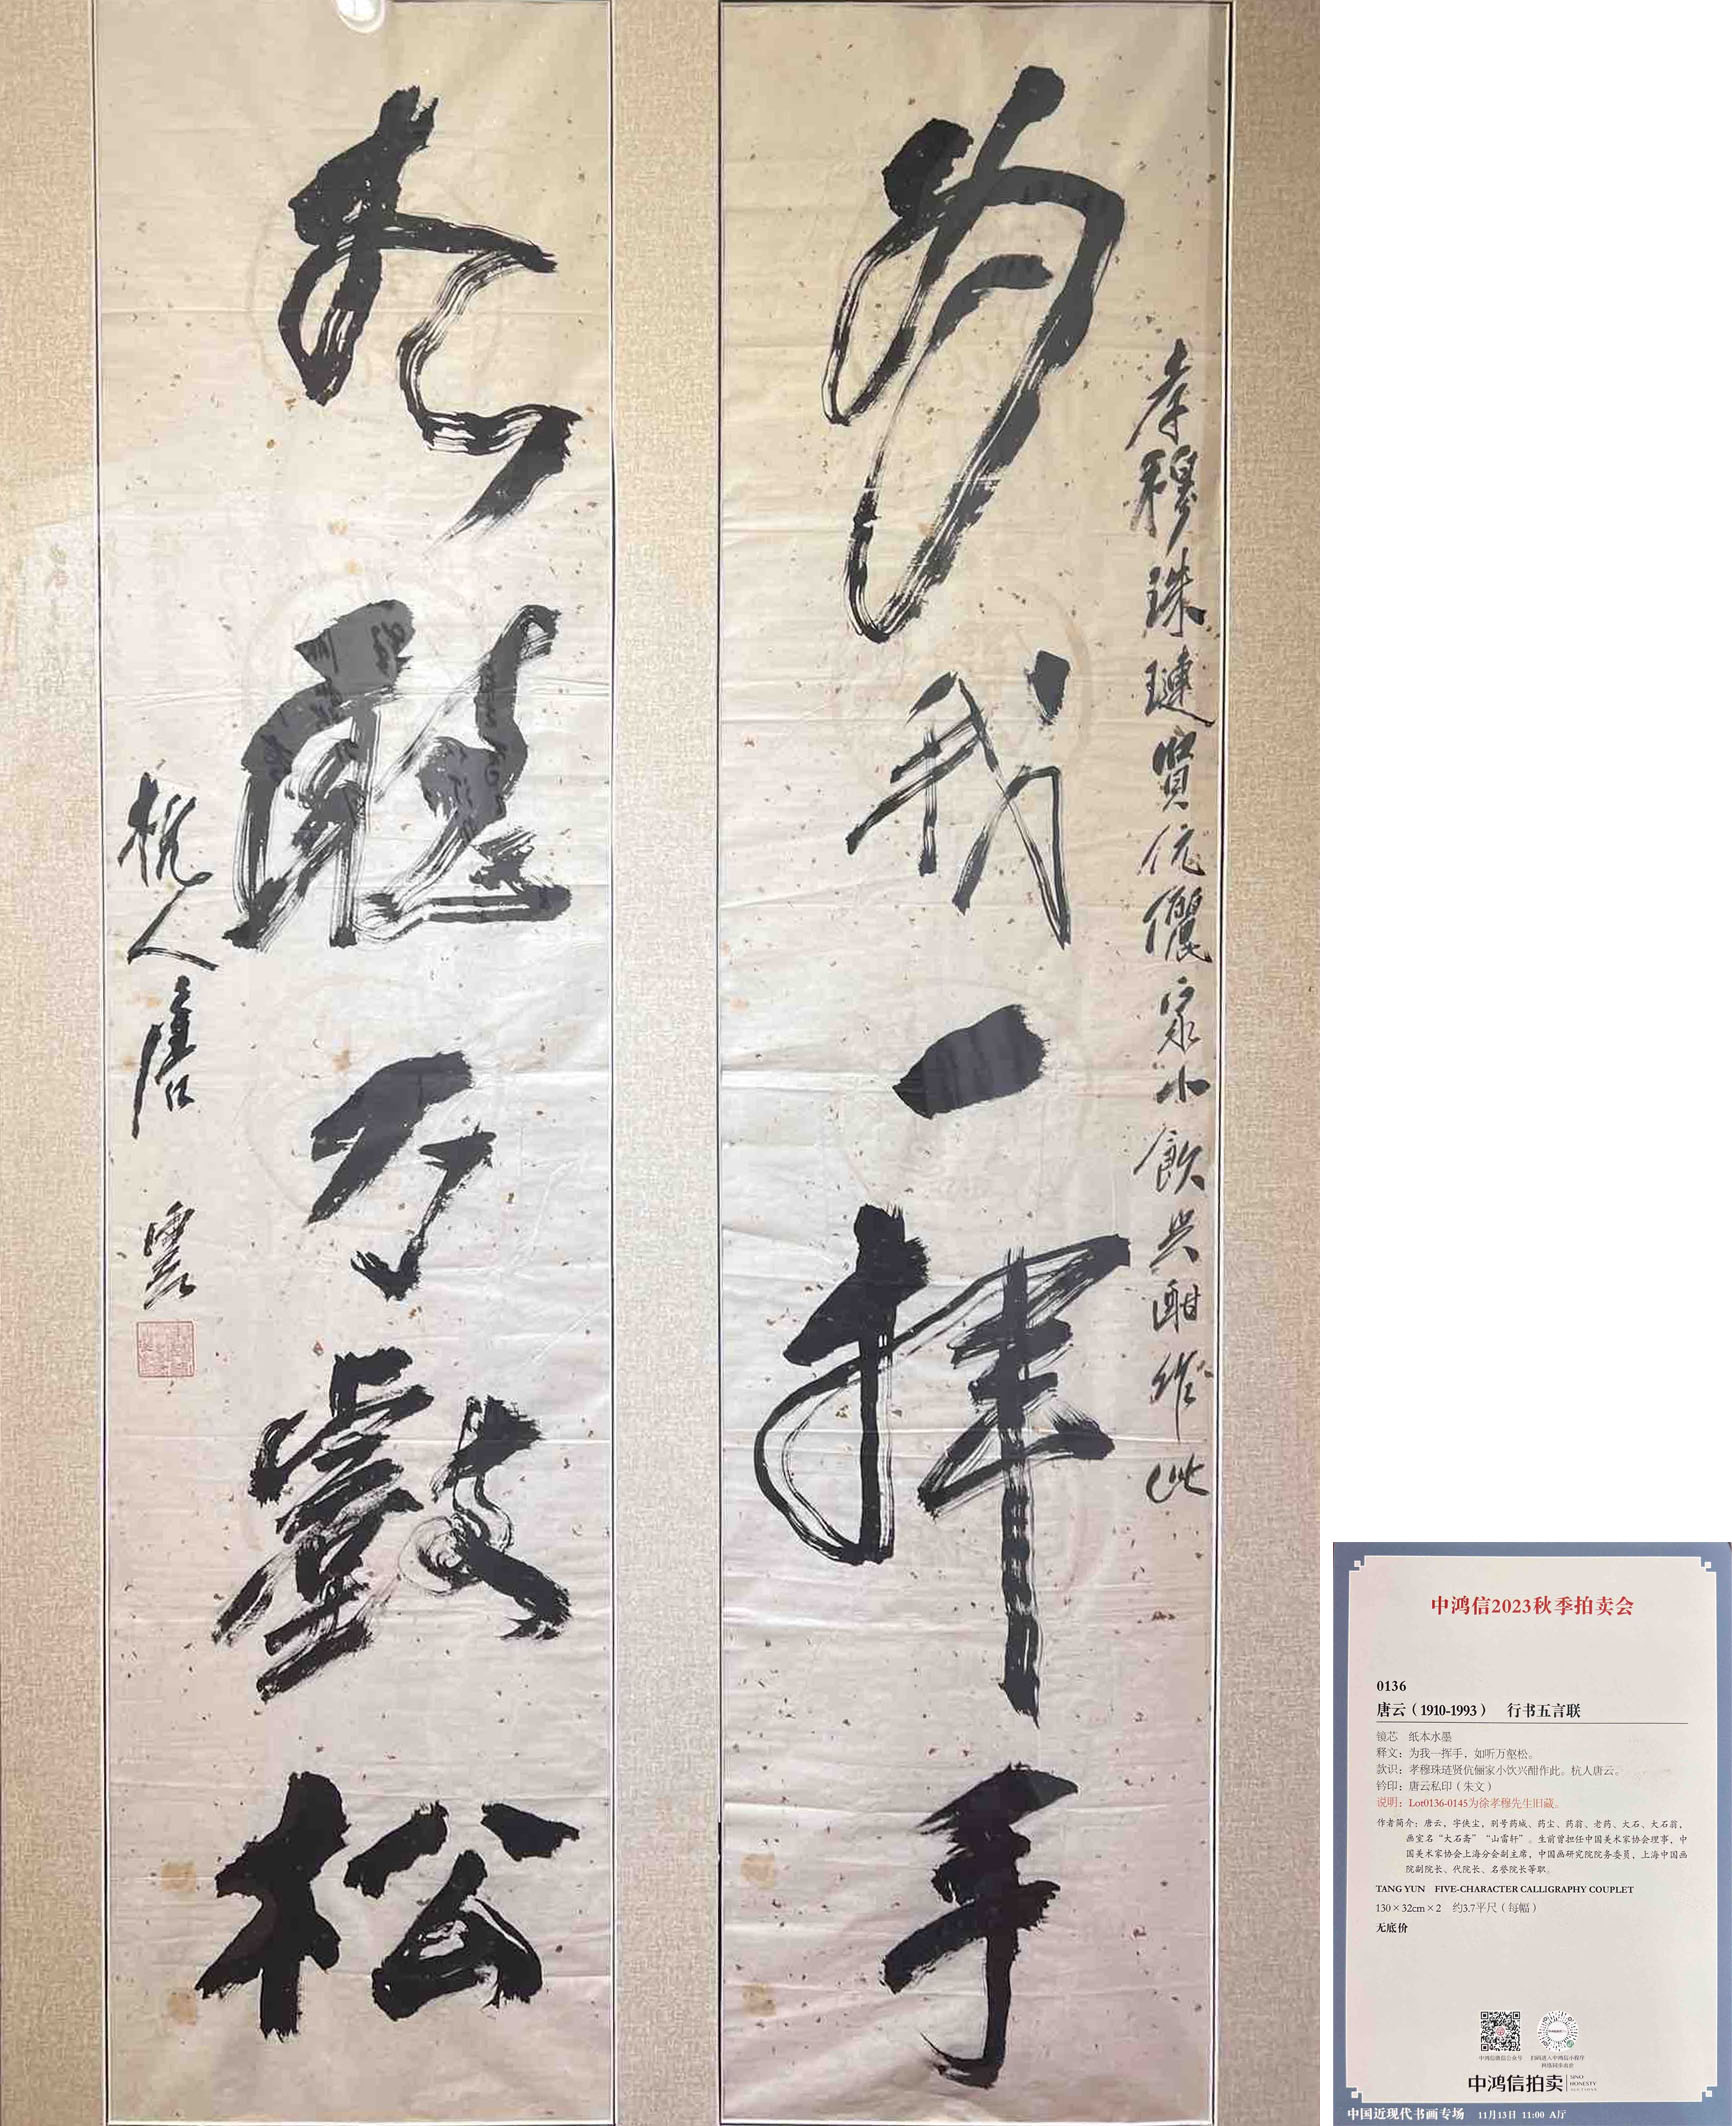 为我一挥手
孝穆珠琏贤伉俪家小饮兴酣作此
如聽万壑松
杭人唐雲
中鸿信2023秋季拍卖会
0136
唐云（1910-1993） 行书五言联
镜芯 纸本水墨
释文：为我一挥手，如听万壑松。
款识：孝穆珠琏贤伉俪家小饮兴酣作此。杭人唐云。
钤印：唐云私印（朱文）
说明：Lot0136-0145为徐孝穆先生旧藏。
作者简介：唐云，字侠尘，别号药城、药尘、药翁、老药、大石、大石翁，
画室名“大石斋”“山雷轩”。生前曾担任中国美术家协会理事，中
国美术家协会上海分会副主席，中国画研究院院务委员，上海中国画
院副院长、代院长、名誉院长等职。
TANG YUN FIVE-CHARACTER CALLIGRAPHY COUPLET
130×32cm×2 约3.7平尺（每幅）
无底价
中鸿信微信公众号
扫码进入中鸿信小程序
网络同步出价
中鸿信拍卖
SINO
HONESTY
AUCTIONS
中国近现代书画专场 11月13日 11:00 A厅